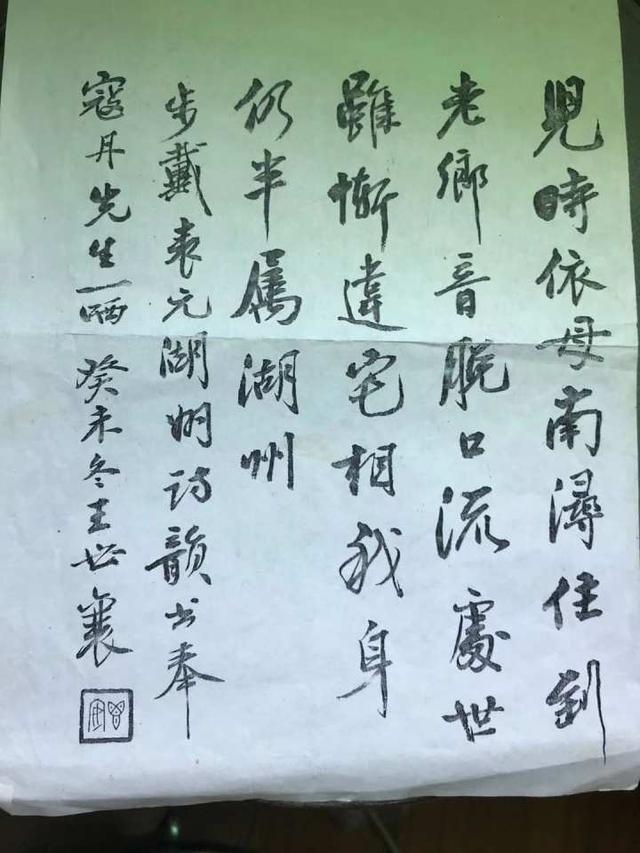 兒時依母南潯住到
老鄉音脫口流處世
雖慚違宅相我身
仍半屬湖州
步戴表元湖州詩韻書奉
寇丹先生一哂 癸未冬王世襄